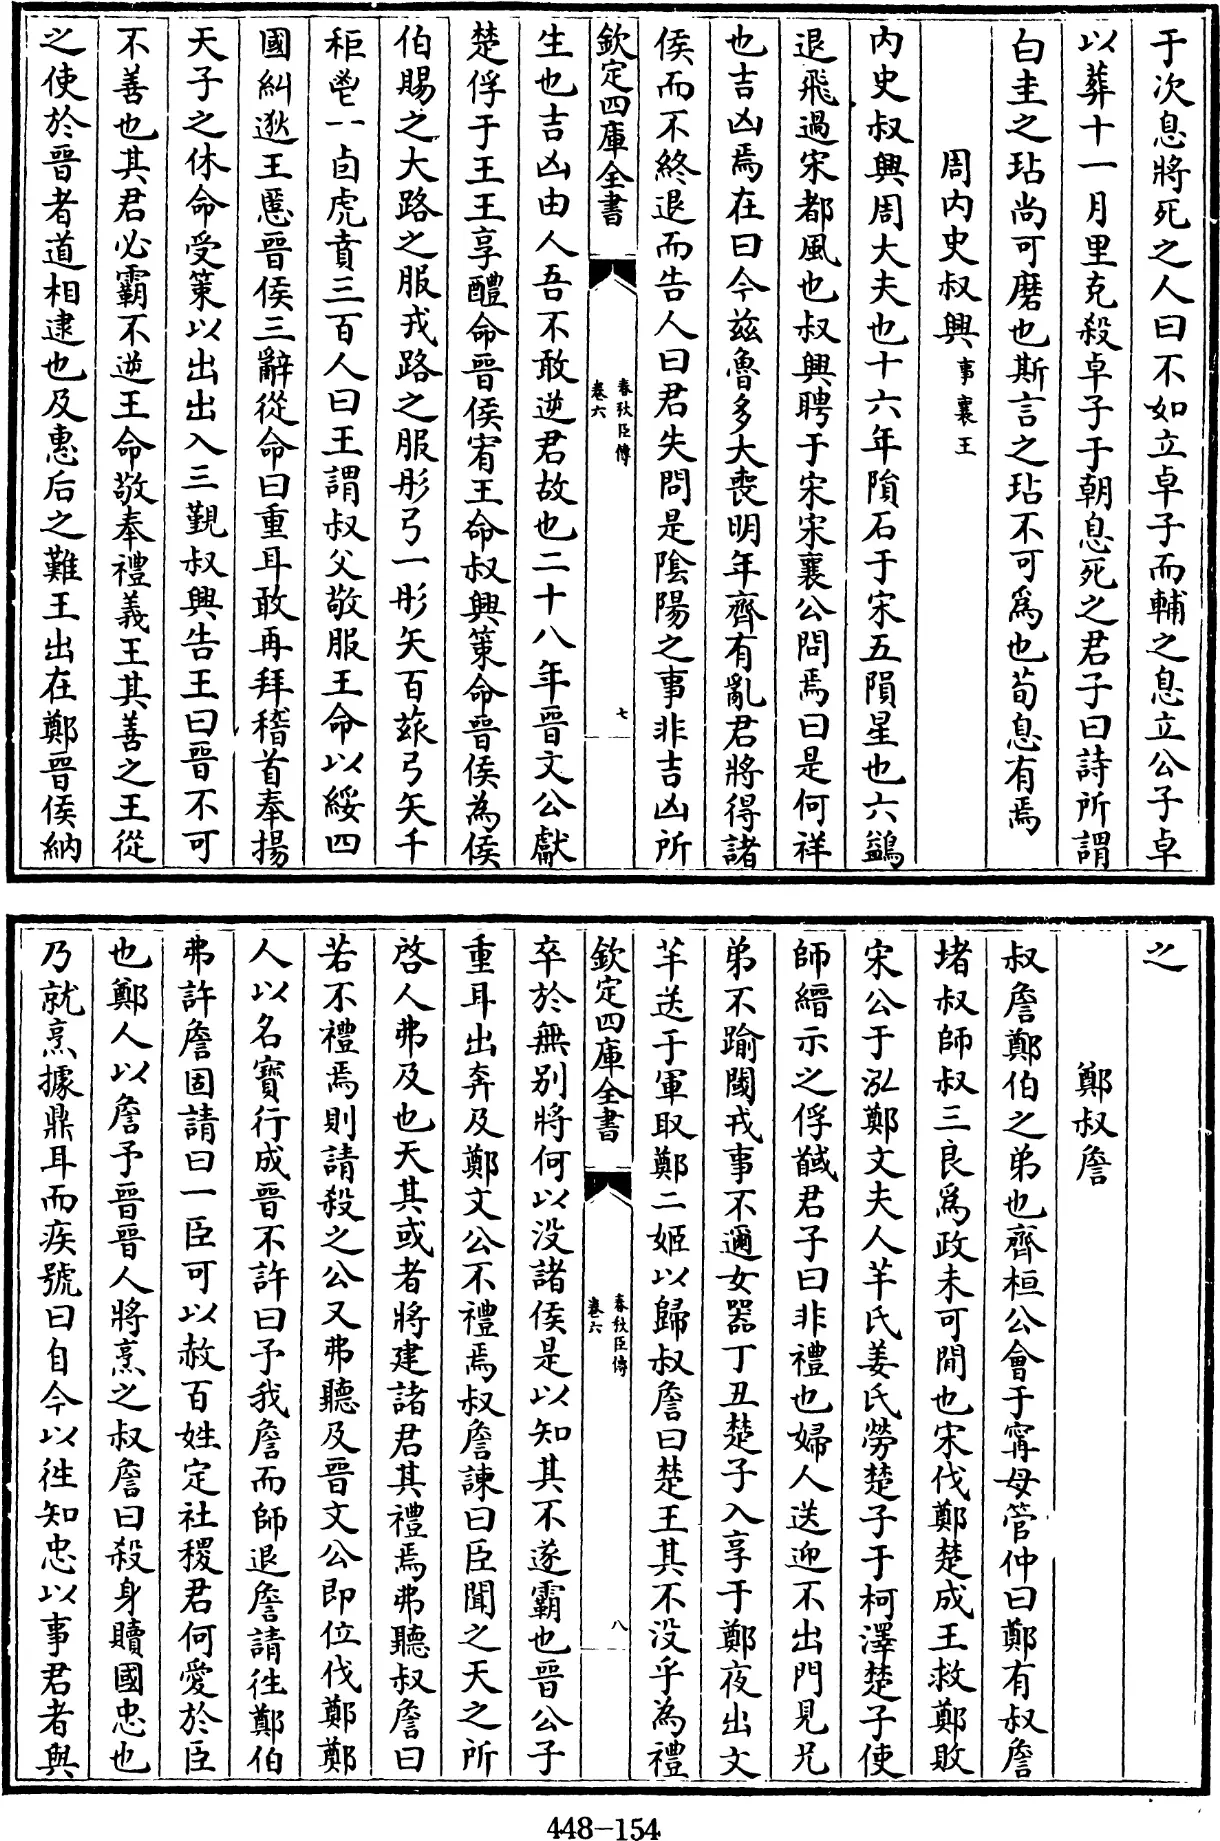 于次息將死之人曰不如立卓子而輔之息立公子卓
以葬十一月里克殺卓子于朝息死之君子曰詩所謂
白圭之玷尚可磨也斯言之玷不可爲也荀息有焉
周内史叔興事襄王
内史叔興周大夫也十六年隕石于宋五隕星也六鷁
退飛過宋都風也叔興聘于宋宋襄公問焉曰是何祥
也吉凶焉在曰今兹魯多大喪明年齊有亂君將得諸
侯而不終退而告人曰君失問是隂陽之事非吉凶所
欽定四庫全書
春秋臣傳
卷六
七
生也吉凶由人吾不敢逆君故也二十八年晉文公獻
楚俘于王王享醴命晉侯宥王命叔興策命晉侯為侯
伯賜之大路之服戎路之服彤弓一彤矢百玈弓矢千
秬鬯一卣虎賁三百人曰王謂叔父敬服王命以綏四
國糾逖王慝晉侯三辭從命曰重耳敢再拜稽首奉揚
天子之休命受策以出出入三覲叔興告王曰晉不可
不善也其君必霸不逆王命敬奉禮義王其善之王從
之使於晉者道相逮也及惠后之難王出在鄭晉侯納
之
鄭叔詹
叔詹鄭伯之弟也齊桓公會于甯母管仲曰鄭有叔詹
堵叔師叔三良爲政未可間也宋伐鄭楚成王救鄭敗
宋公于泓鄭文夫人芊氏姜氏勞楚子于柯澤楚子使
師縉示之俘馘君子曰非禮也婦人送迎不出門見兄
弟不踰閾戎事不邇女器丁丑楚子入享于鄭夜出文
芊送于軍取鄭二姬以歸叔詹曰楚王其不没乎為禮
卒於無别將何以没諸侯是以知其不遂霸也晉公子
重耳出奔及鄭文公不禮焉叔詹諫曰臣聞之天之所
啓人弗及也天其或者將建諸君其禮焉弗聽叔詹曰
若不禮焉則請殺之公又弗聽及晉文公即位伐鄭鄭
人以名寳行成晉不許曰予我詹而師退詹請徃鄭伯
弗許詹固請曰一臣可以赦百姓定社稷君何愛於臣
也鄭人以詹予晉晉人將烹之叔詹曰殺身贖國忠也
乃就烹據鼎耳而疾號曰自今以徃知忠以事君者與
欽定四庫全書
春秋臣傳
卷六
八
448-154